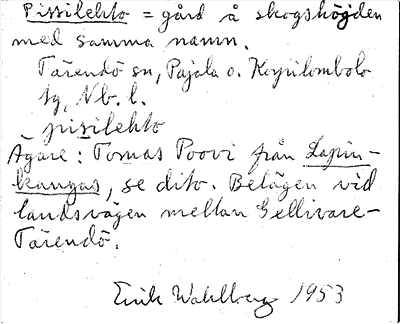 Pissilehto = gård å skogshöjden
med samma namn.
Tärendö sn, Pajala o. Korpilombolo
tg, Nb. l.
pissilehto
Ägare: Tomas Poovi från Lapin-
kangas, se dito. Belägen vid
landsvägen mellan Gellivare-
Tärendö.
Erik Wahlberg 1953